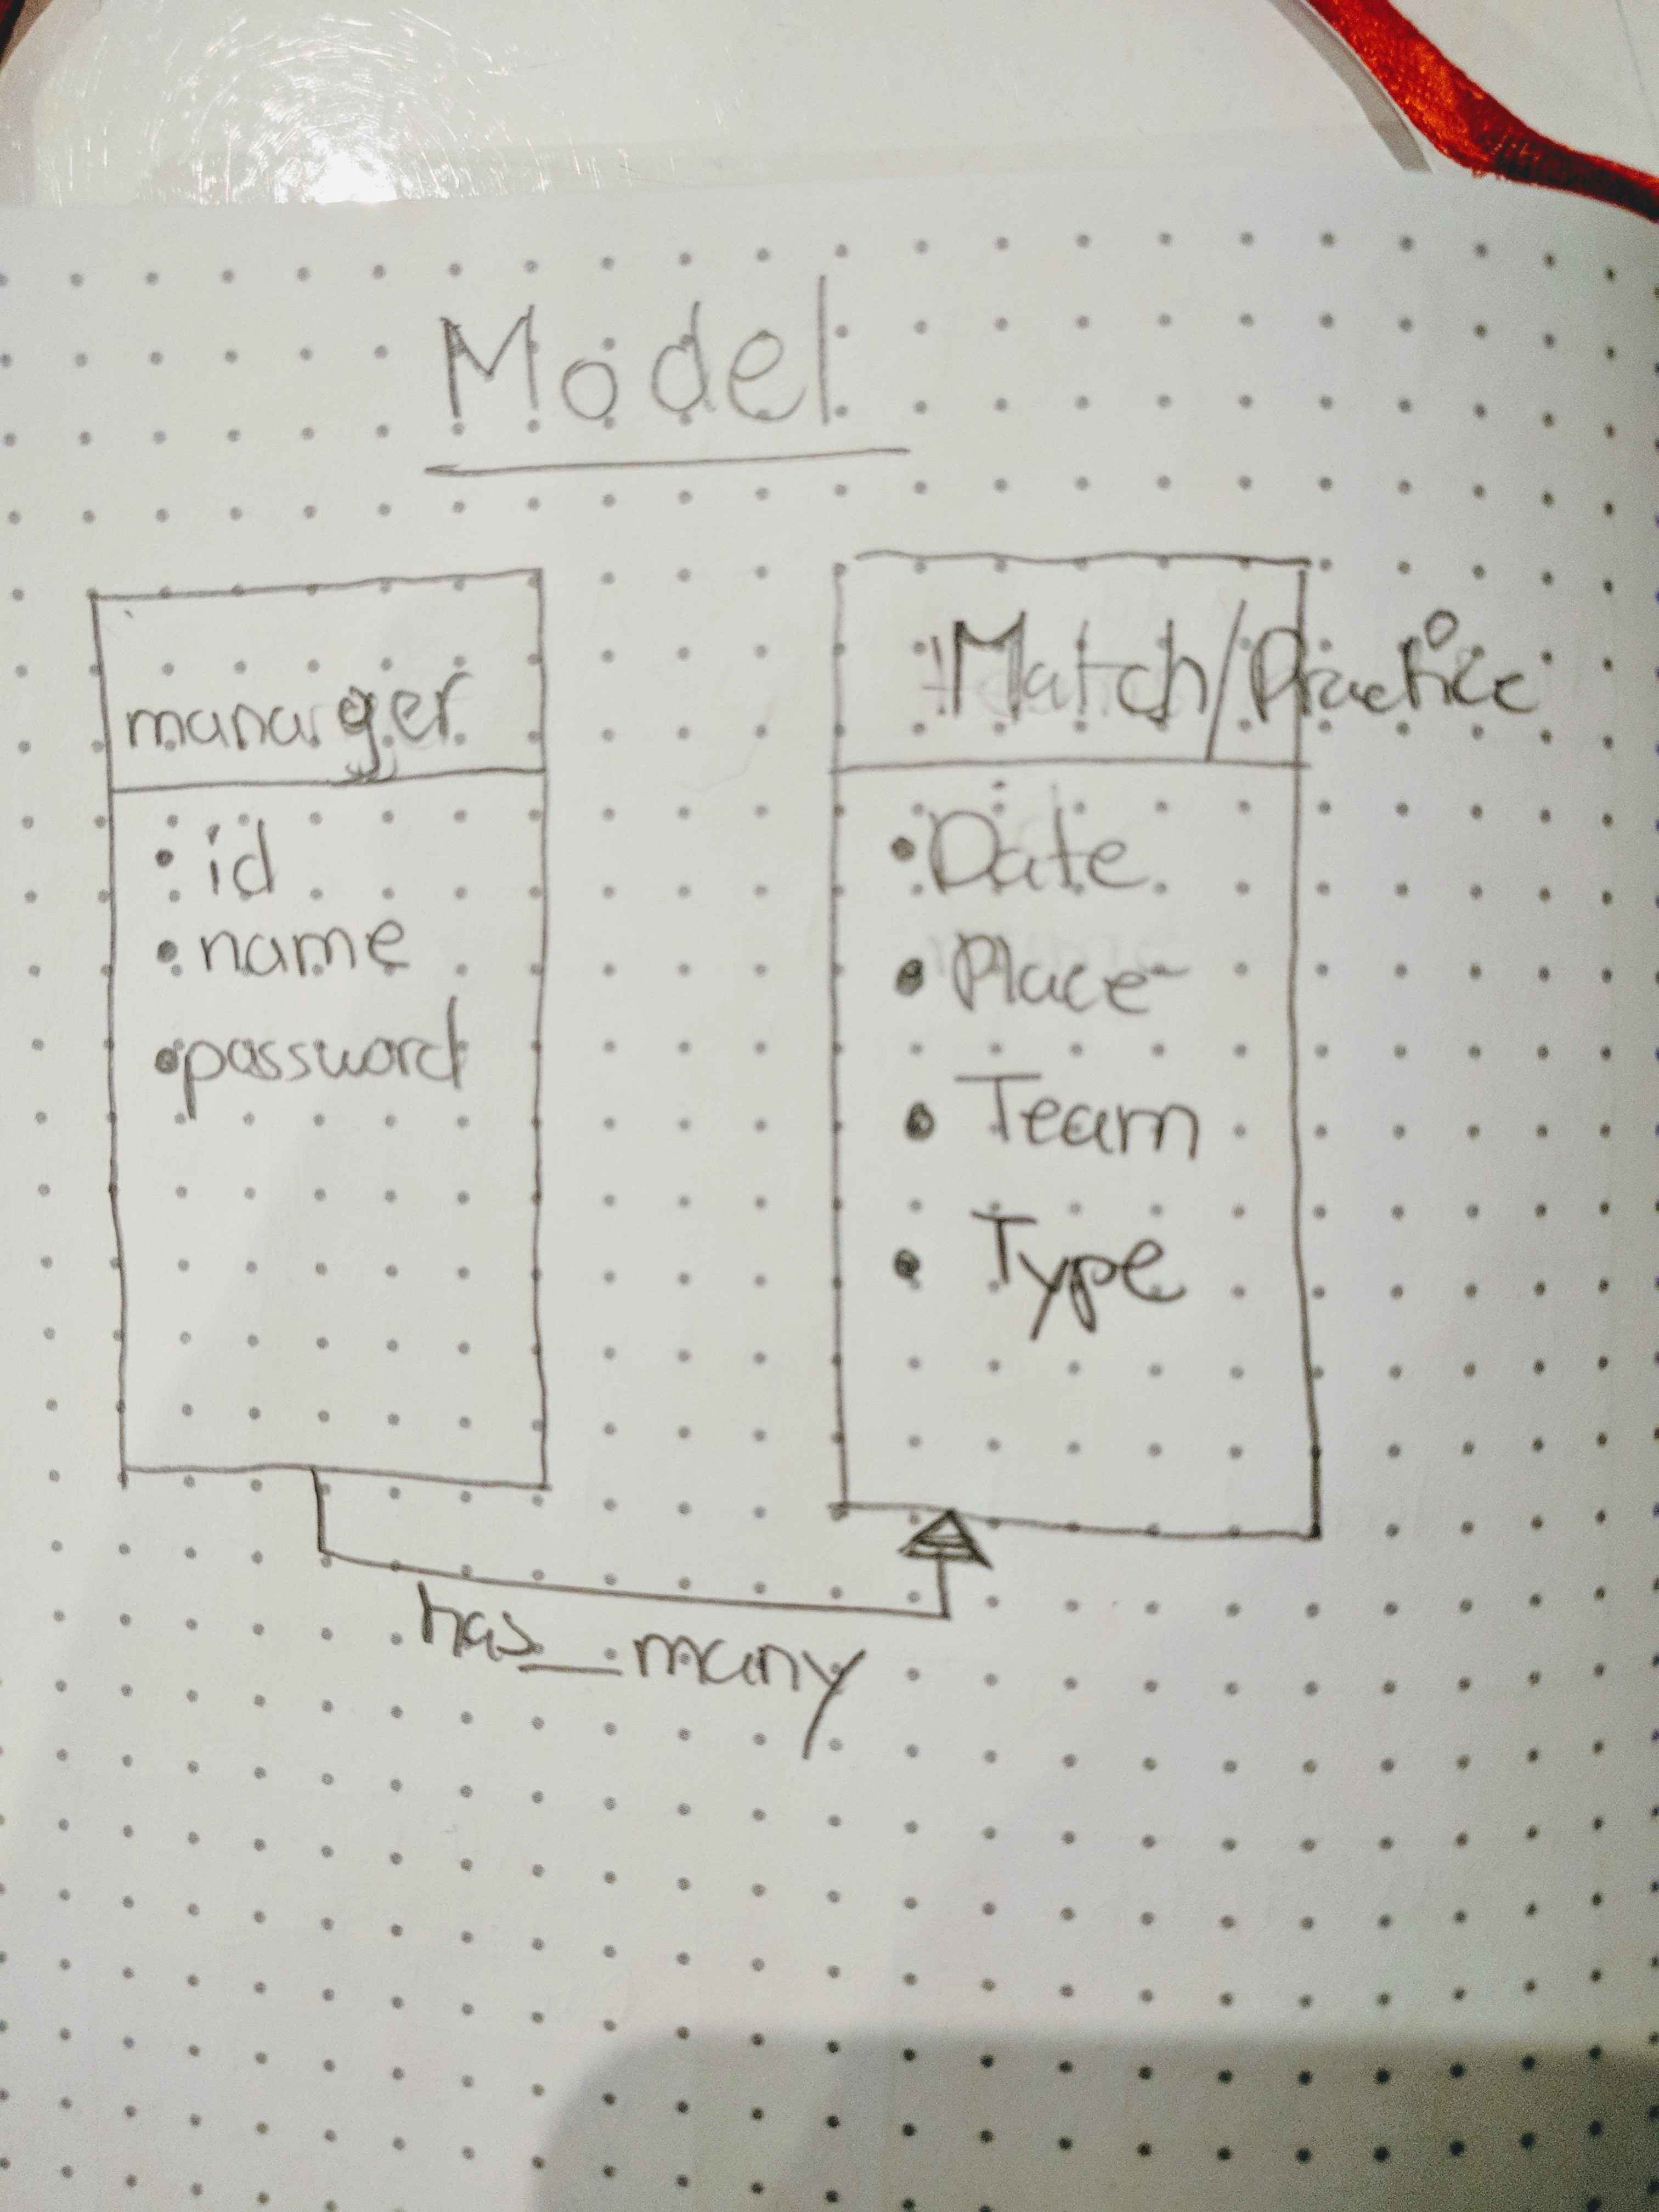 Model
manarger
• id
• name
• password
Match/Practice
• Date
• Place
• Team
• Type
has_many